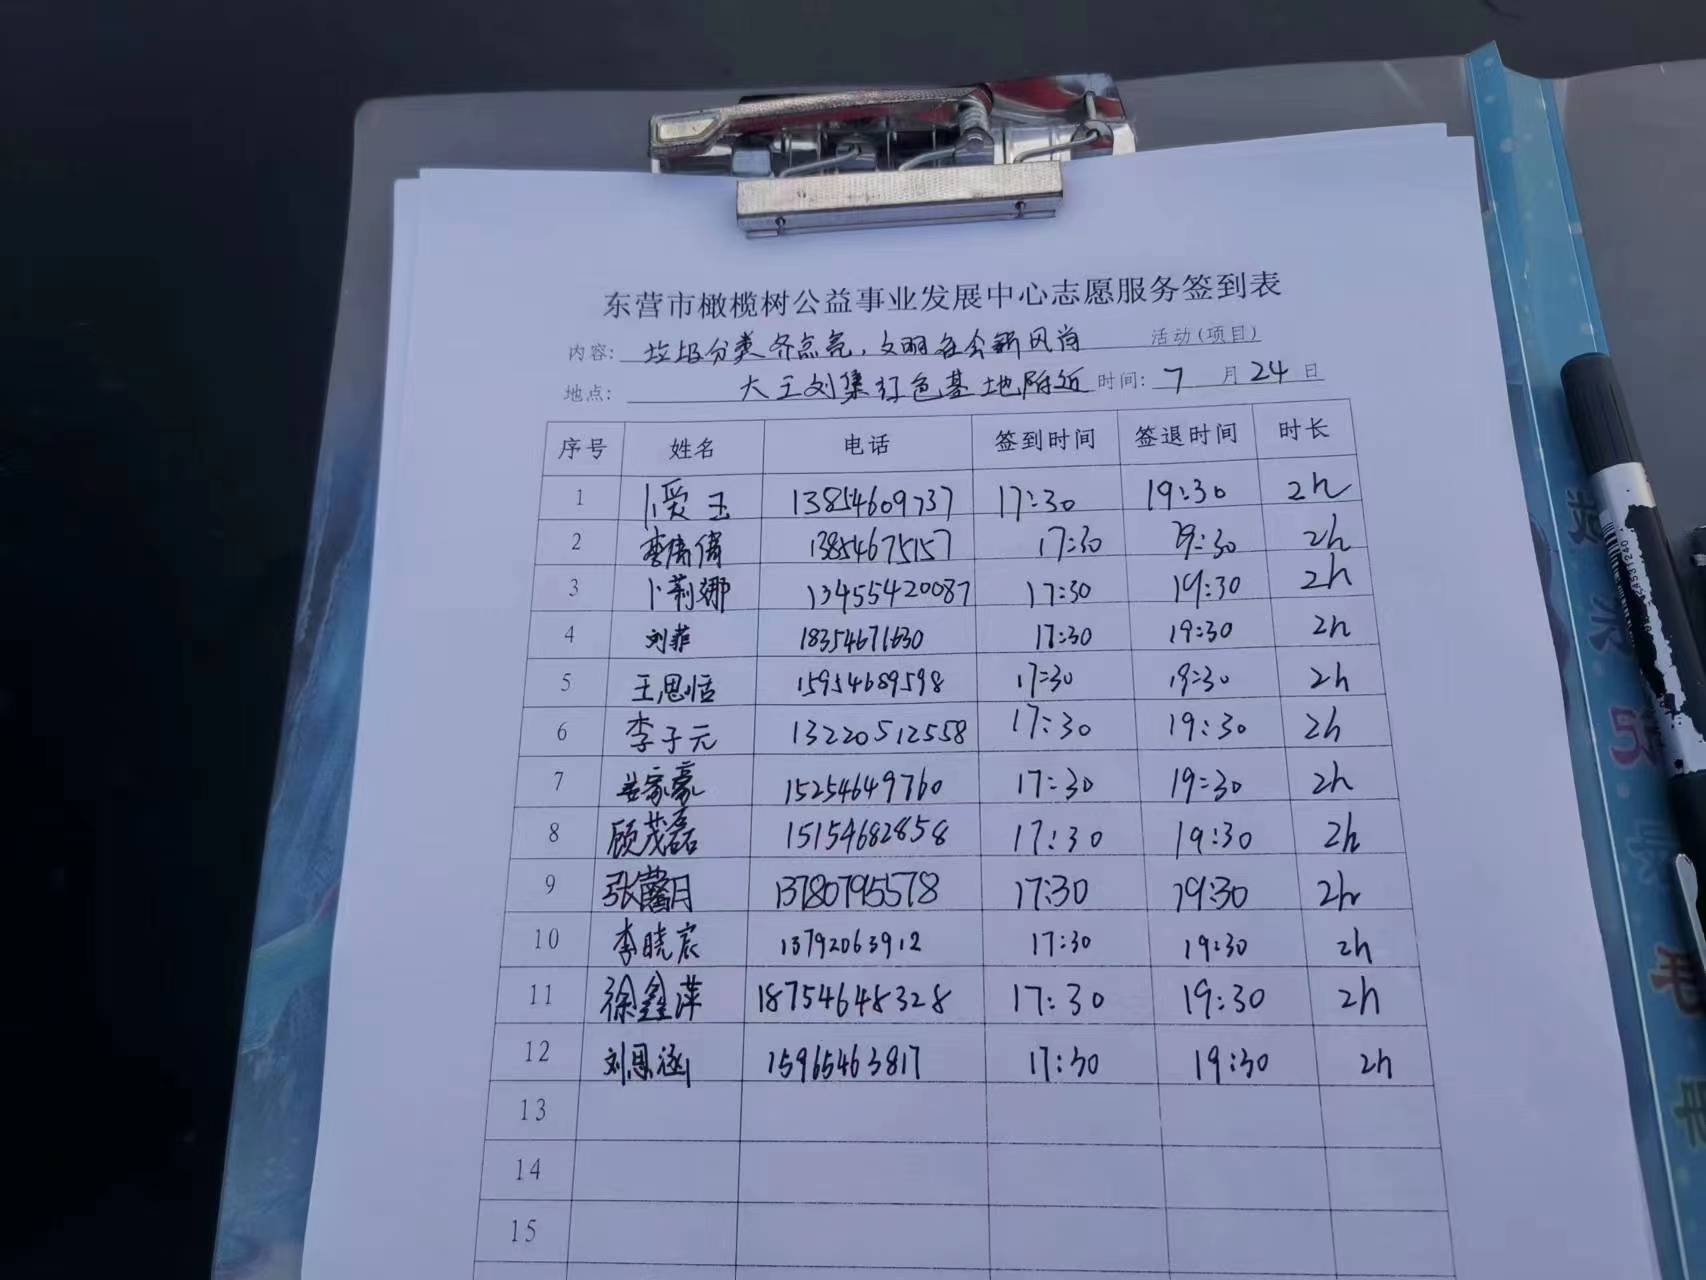 东营市橄榄树公益事业发展中心志愿服务签到表
内容: 垃圾分类齐点亮，文明社会新风尚 活动(项目)
地点: 大王刘集红色基地附近 时间: 7 月 24 日
序号 姓名 电话 签到时间 签退时间 时长
1 卜爱玉 13854609737 17:30 19:30 2h
2 李倩倩 13854675157 17:30 19:30 2h
3 卜莉娜 13455420087 17:30 19:30 2h
4 刘菲 18354671630 17:30 19:30 2h
5 王思恬 15954689598 17:30 19:30 2h
6 李子元 13220512558 17:30 19:30 2h
7 姜家豪 15254649760 17:30 19:30 2h
8 顾茂磊 15154682858 17:30 19:30 2h
9 张馨月 13780795578 17:30 19:30 2h
10 李晓宸 13792063912 17:30 19:30 2h
11 徐鑫萍 18754648328 17:30 19:30 2h
12 刘恩涵 15965463817 17:30 19:30 2h
13
14
15